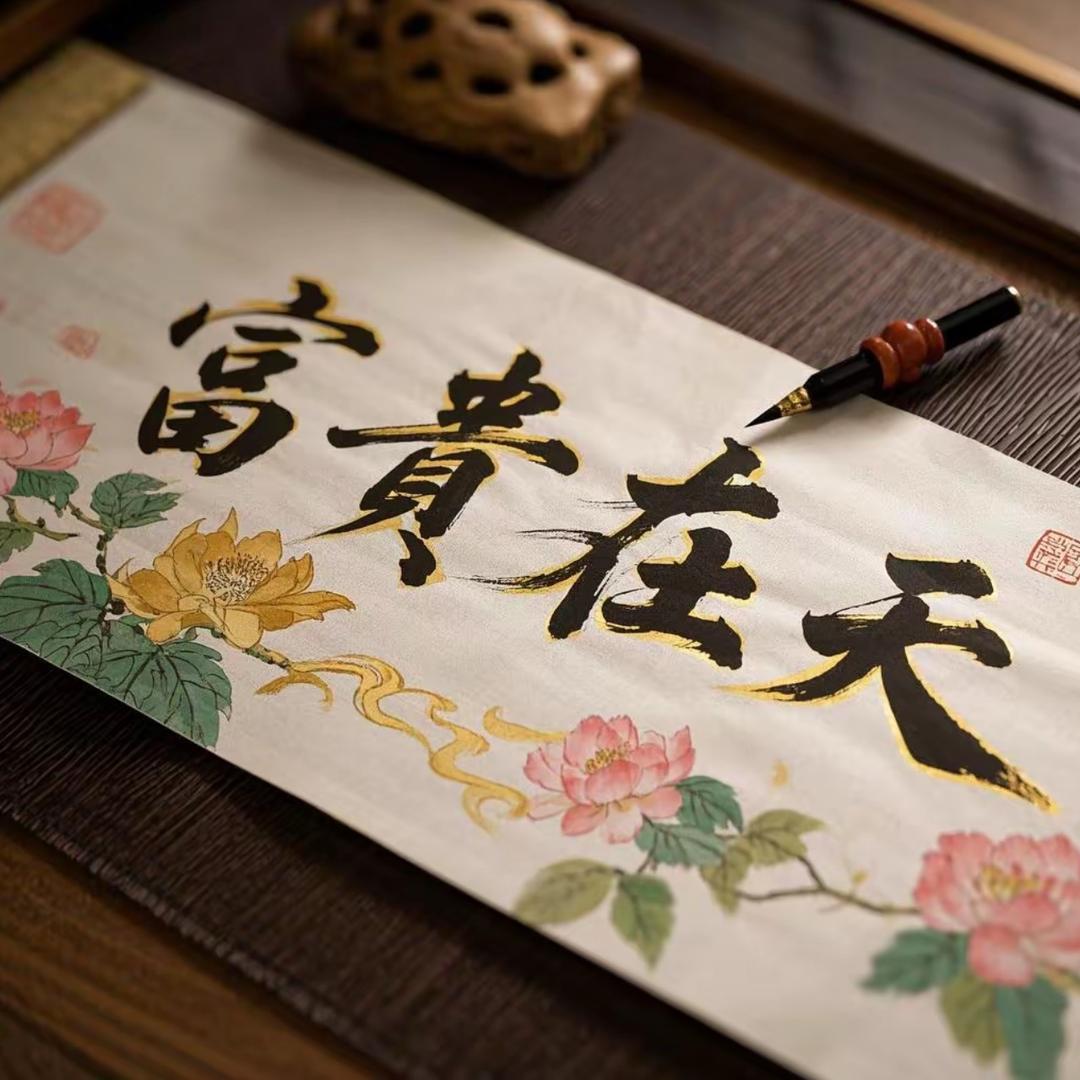 富貴在天